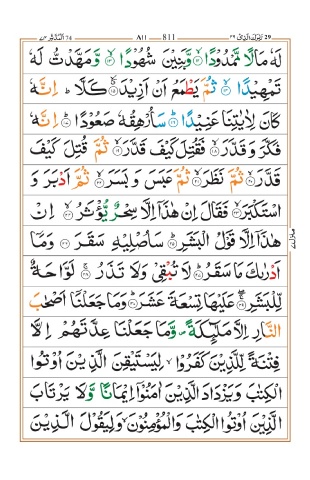 تبٰرك الذی ٢٩ 811 المدثر ٧٤
لَهٗ مَالًا مَّمْدُوْدًا ۙ﴿۱۲﴾ وَّبَنِيْنَ شُهُوْدًا ۙ﴿۱۳﴾ وَّمَهَّدْتُّ لَهٗ
تَمْهِيْدًا ۙ﴿۱۴﴾ ثُمَّ يَطْمَعُ اَنْ اَزِيْدَ ۙ﴿۱۵﴾ كَلَّا ؕ اِنَّهٗ
كَانَ لِاٰيٰتِنَا عَنِيْدًا ؕ﴿۱۶﴾ سَاُرْهِقُهٗ صَعُوْدًا ؕ﴿۱۷﴾ اِنَّهٗ
فَكَّرَ وَقَدَّرَ ۙ﴿۱۸﴾ فَقُتِلَ كَيْفَ قَدَّرَ ۙ﴿۱۹﴾ ثُمَّ قُتِلَ كَيْفَ
قَدَّرَ ۙ﴿۲۰﴾ ثُمَّ نَظَرَ ۙ﴿۲۱﴾ ثُمَّ عَبَسَ وَبَسَرَ ۙ﴿۲۲﴾ ثُمَّ اَدْبَرَ وَ
اسْتَكْبَرَ ۙ﴿۲۳﴾ فَقَالَ اِنْ هٰذَاۤ اِلَّا سِحْرٌ يُّؤْثَرُ ۙ﴿۲۴﴾ اِنْ
هٰذَاۤ اِلَّا قَوْلُ الْبَشَرِ ؕ﴿۲۵﴾ سَاُصْلِيْهِ سَقَرَ ﴿۲۶﴾ وَمَاۤ
اَدْرٰىكَ مَا سَقَرُ ؕ﴿۲۷﴾ لَا تُبْقِىْ وَلَا تَذَرُ ۚ﴿۲۸﴾ لَوَّاحَةٌ
لِّلْبَشَرِ ۚۖ﴿۲۹﴾ عَلَيْهَا تِسْعَةَ عَشَرَ ؕ﴿۳۰﴾ وَمَا جَعَلْنَاۤ اَصْحٰبَ
النَّارِ اِلَّا مَلٰٓٮِٕكَةً ۖ وَّمَا جَعَلْنَا عِدَّتَهُمْ اِلَّا
فِتْنَةً لِّلَّذِيْنَ كَفَرُوْا ۙ لِيَسْتَيْقِنَ الَّذِيْنَ اُوْتُوا
الْكِتٰبَ وَيَزْدَادَ الَّذِيْنَ اٰمَنُوْۤا اِيْمَانًا وَّلَا يَرْتَابَ
الَّذِيْنَ اُوْتُوا الْكِتٰبَ وَالْمُؤْمِنُوْنَ ۙ وَلِيَقُوْلَ الَّذِيْنَ